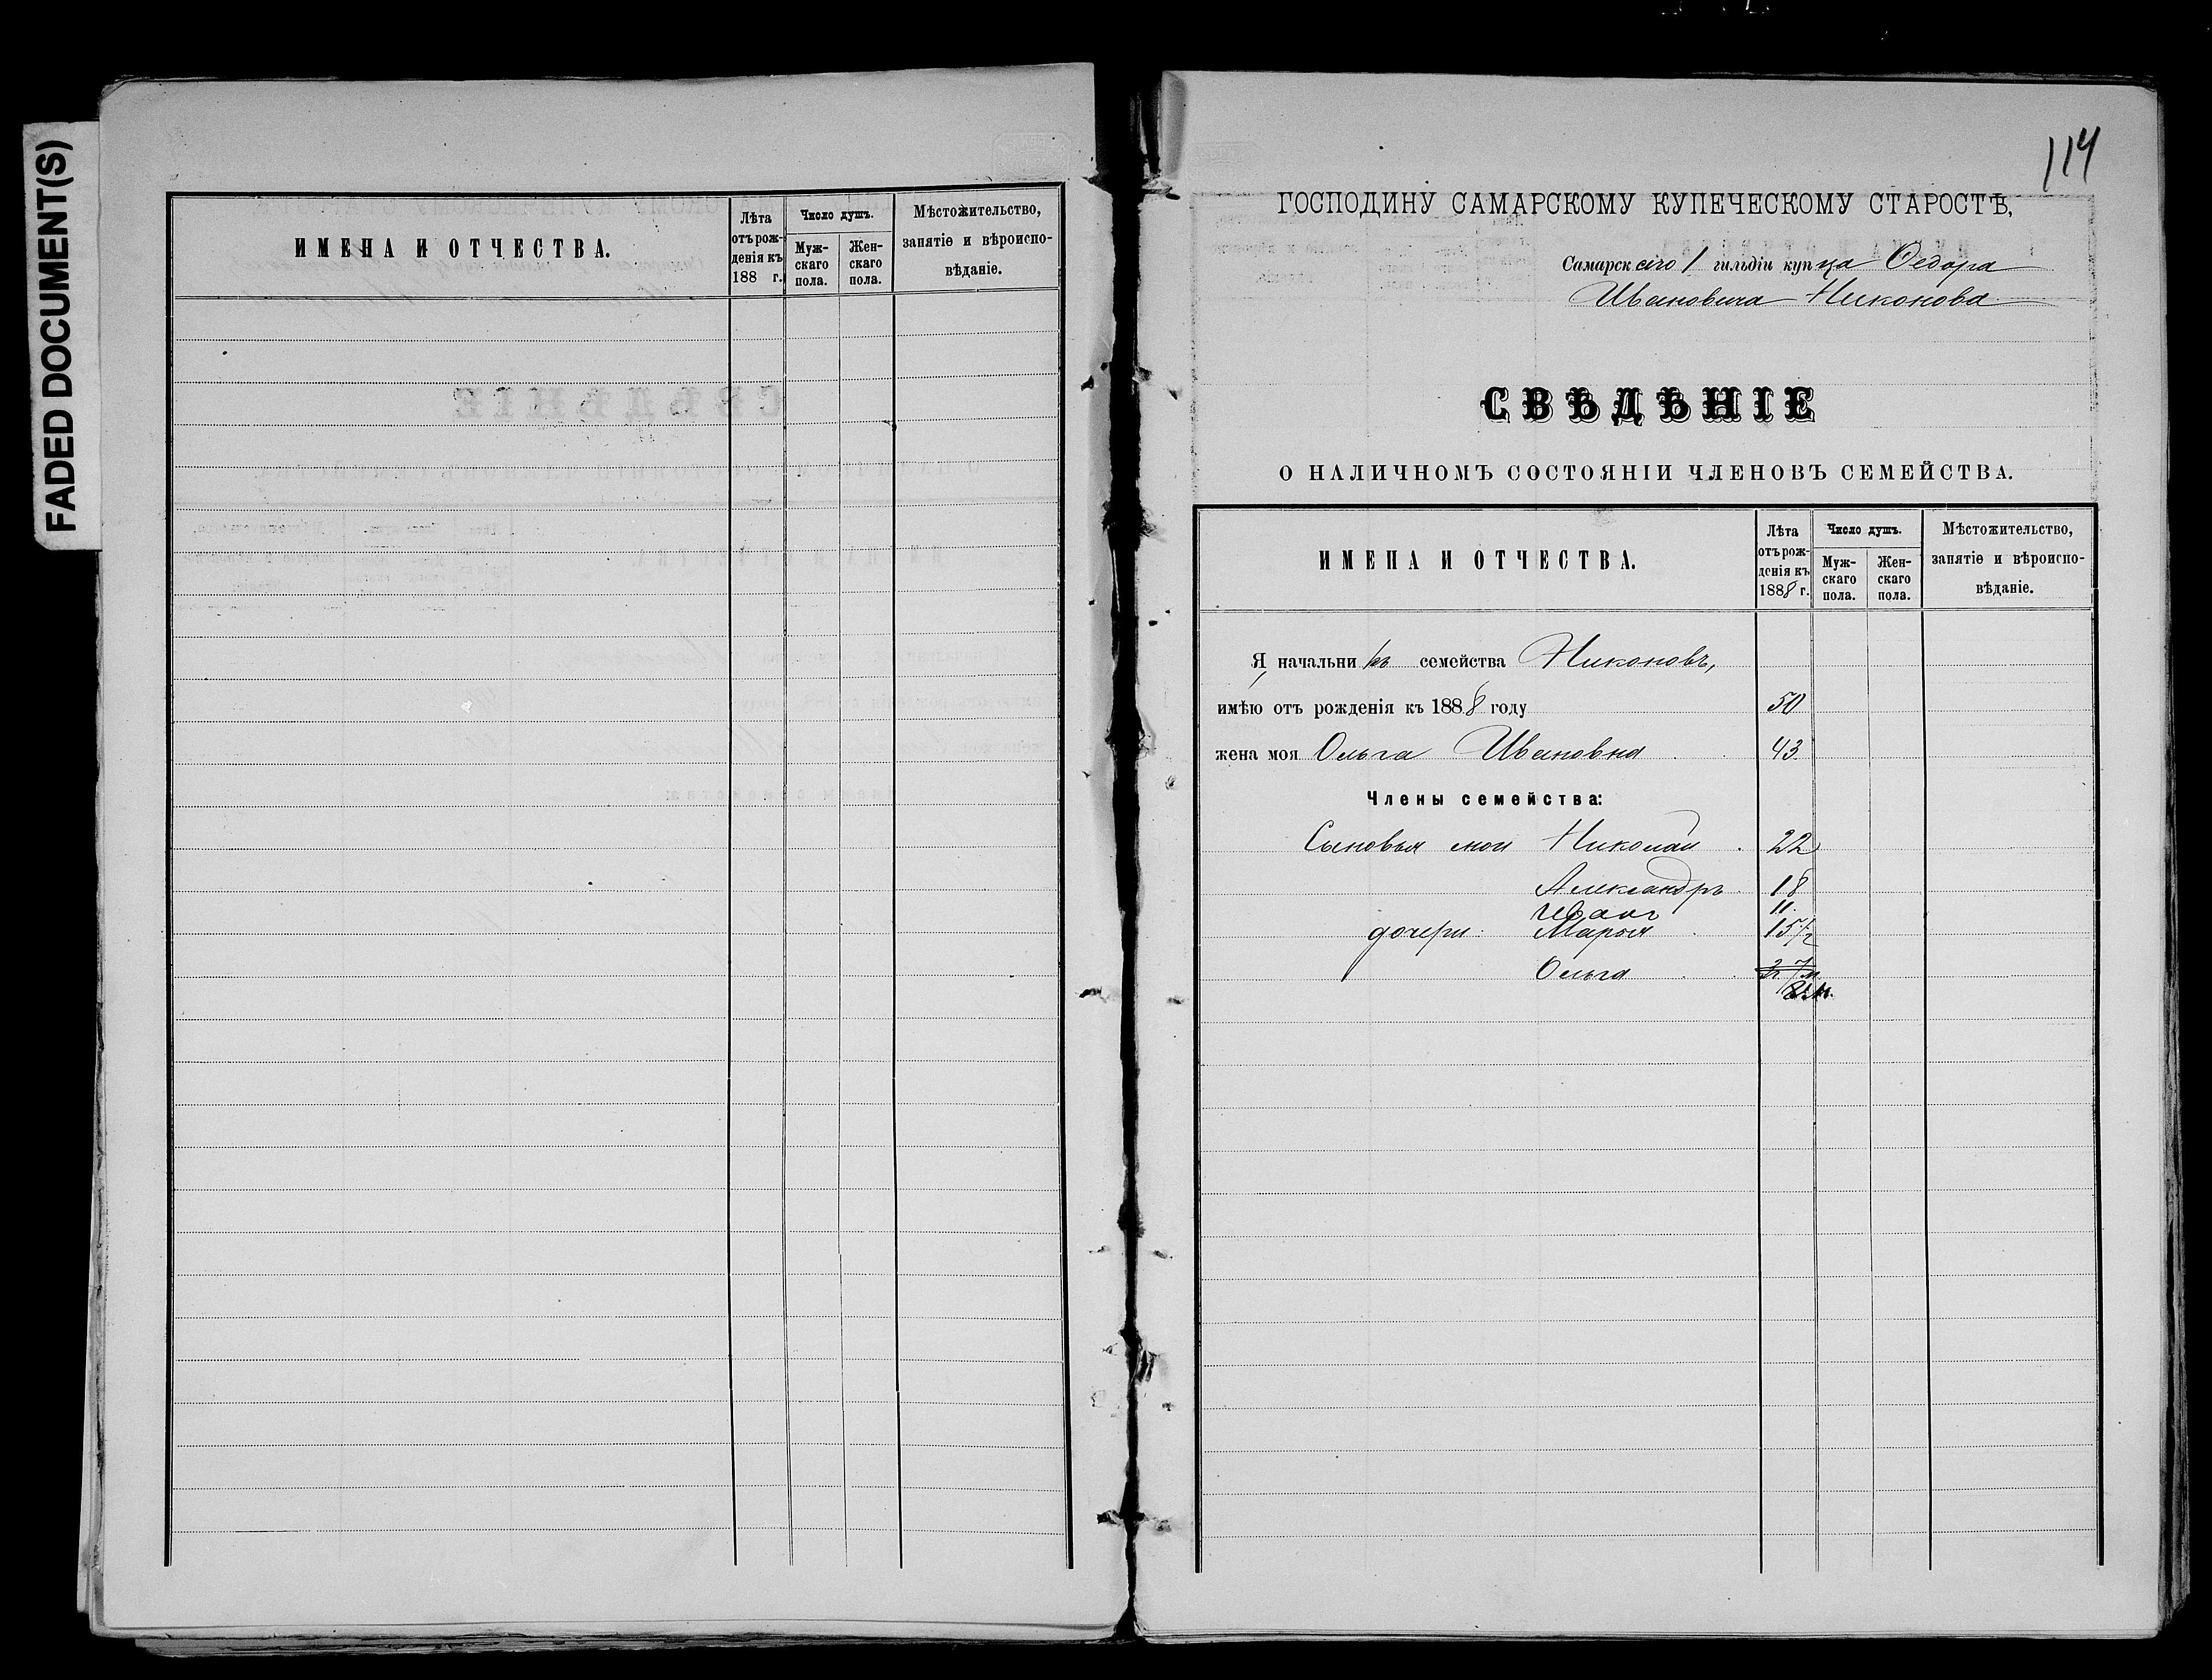 FADED DOCUMENT(S)
ИМЕНА И ОТЧЕСТВА.
Лѣта
отъ рож-
денія къ
188 г.
Число душъ.
Муж-
скаго
пола.
Жен-
скаго
пола.
Мѣстожительство,
занятіе и вѣроиспо-
вѣданіе.
114
ГОСПОДИНУ САМАРСКОМУ КУПЕЧЕСКОМУ СТАРОСТѢ,
Самарскаго 1 гильдіи купца Ѳедора
Ивановича Никонова
СВѢДѢНІЕ
О НАЛИЧНОМЪ СОСТОЯНІИ ЧЛЕНОВЪ СЕМЕЙСТВА.
ИМЕНА И ОТЧЕСТВА.
Лѣта
отъ рож-
денія къ
1888 г.
Число душъ.
Муж-
скаго
пола.
Жен-
скаго
пола.
Мѣстожительство,
занятіе и вѣроиспо-
вѣданіе.
Я, начальникъ семейства Никоновъ,
имѣю отъ рожденія къ 1888 году 50
жена моя Ольга Ивановна 43
Члены семейства:
Сыновья мои Николай 22
Александръ 18
Иванъ 11
дочери: Марья 15 1/2
Ольга